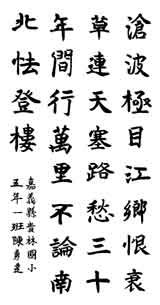 滄波極目江鄉恨衰
草連天塞路愁三十
年間行萬里不論南
北怯登樓
嘉義縣林國小
五年一班陳